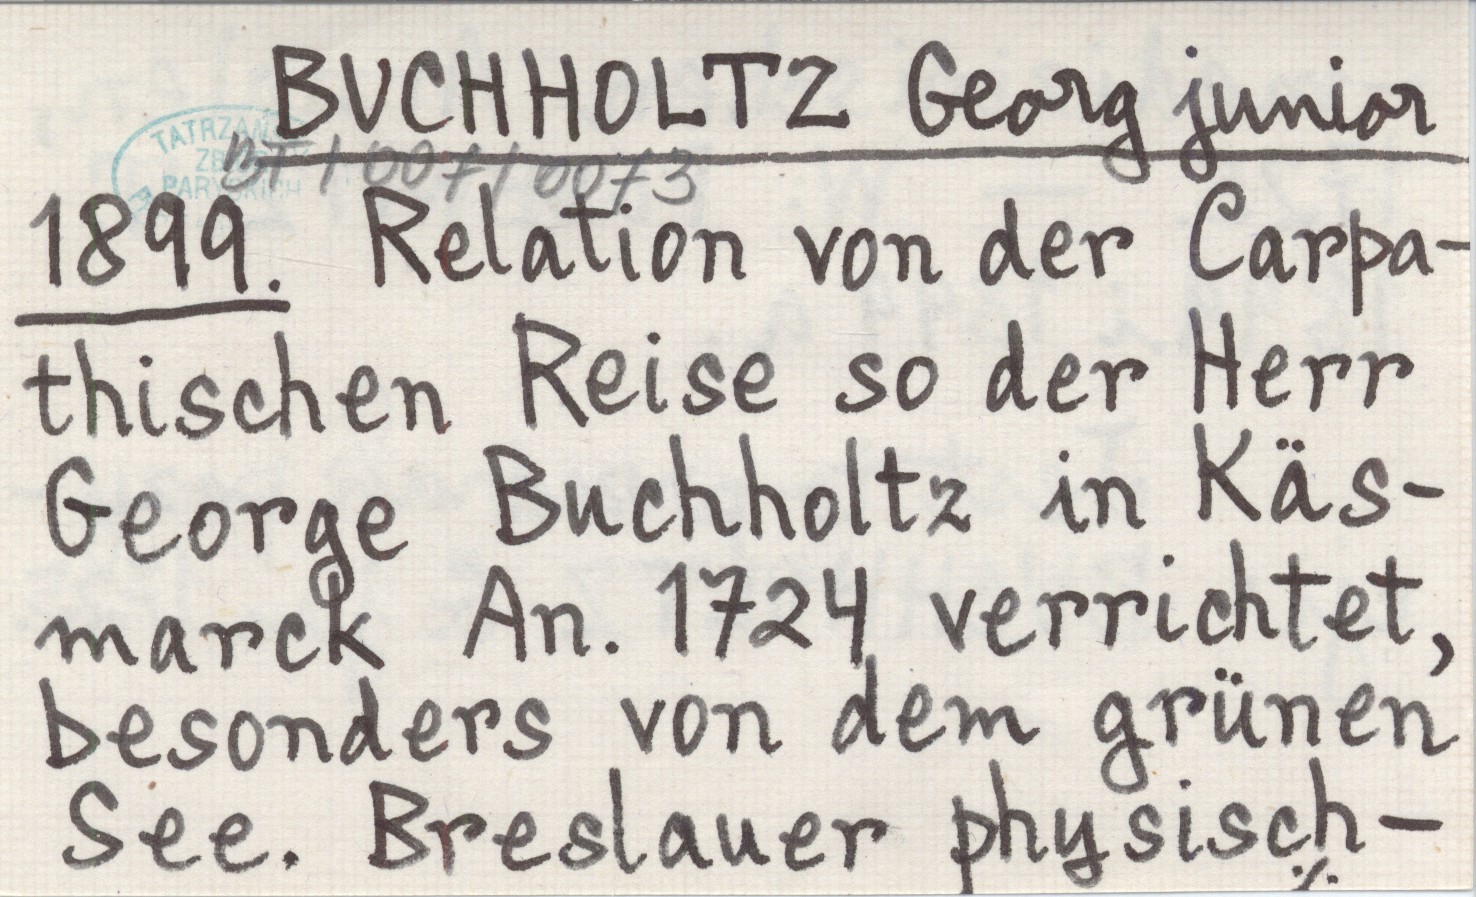 BUCHHOLTZ Georg junior
BT/007/0073
1899. Relation von der Carpa-
thischen Reise so der Herr
George Buchholtz in Käs-
marck An. 1724 verrichtet,
besonders von dem grünen
See. Breslauer physisch-
./.